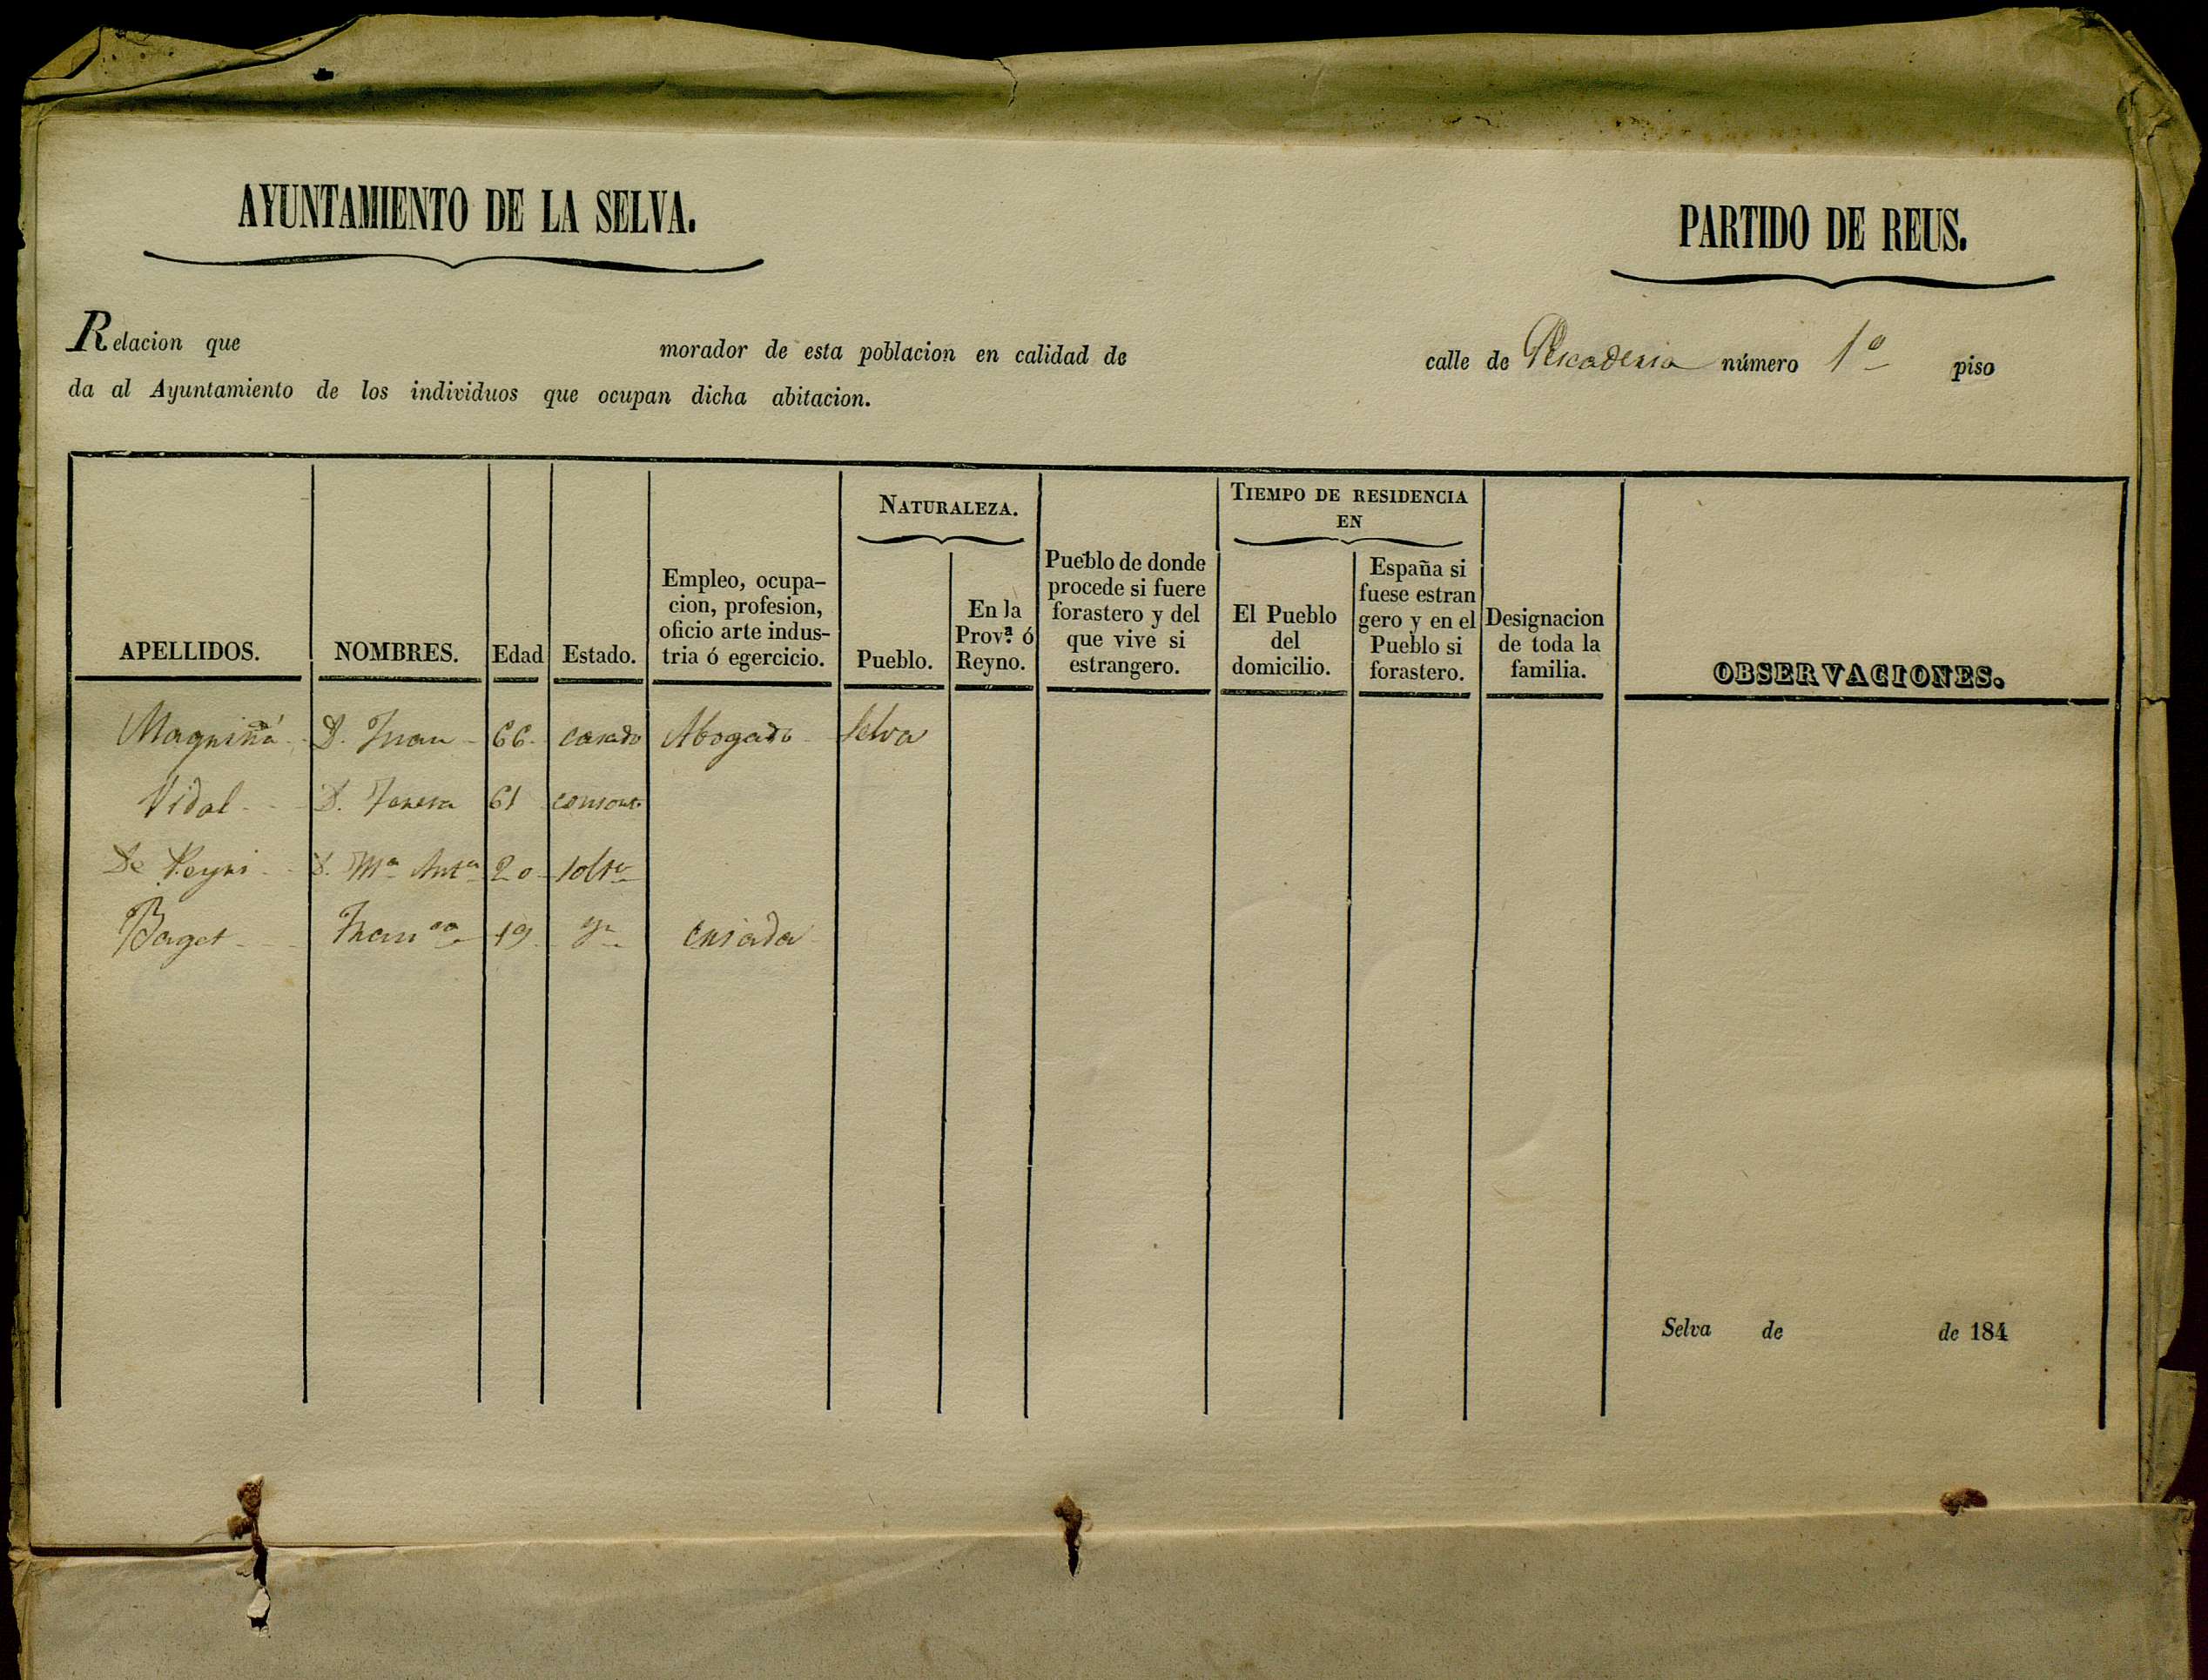 AYUNTAMIENTO DE LA SELVA.
PARTIDO DE REUS.
Relacion que morador de esta poblacion en calidad de calle de Pescaderia número 1º piso
da al Ayuntamiento de los individuos que ocupan dicha abitacion.
APELLIDOS.
NOMBRES.
Edad
Estado.
Empleo, ocupa-
cion, profesion,
oficio arte indus-
tria ó egercicio.
NATURALEZA.
Pueblo.
En la
Prov.ª ó
Reyno.
Pueblo de donde
procede si fuere
forastero y del
que vive si
estrangero.
TIEMPO DE RESIDENCIA
EN
El Pueblo
del
domicilio.
España si
fuese estran
gero y en el
Pueblo si
forastero.
Designacion
de toda la
familia.
OBSERVACIONES.
Magriñá D. Juan 66 casado Abogado Selva
Vidal D. Teresa 61 consorte
De D. Mª Antª 20 soltª
Baget Franca 19 criada
Selva de de 184